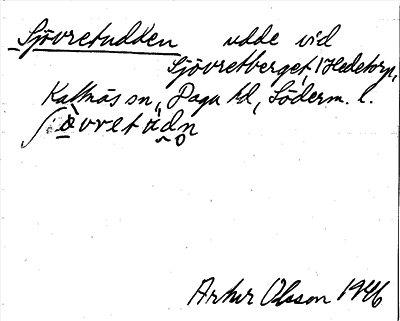 Sjövretudden udde vid
Sjövretberget, Hedetorp,
Kattnäs sn, Daga hd, Söderm. l.
Artur Olsson 1946